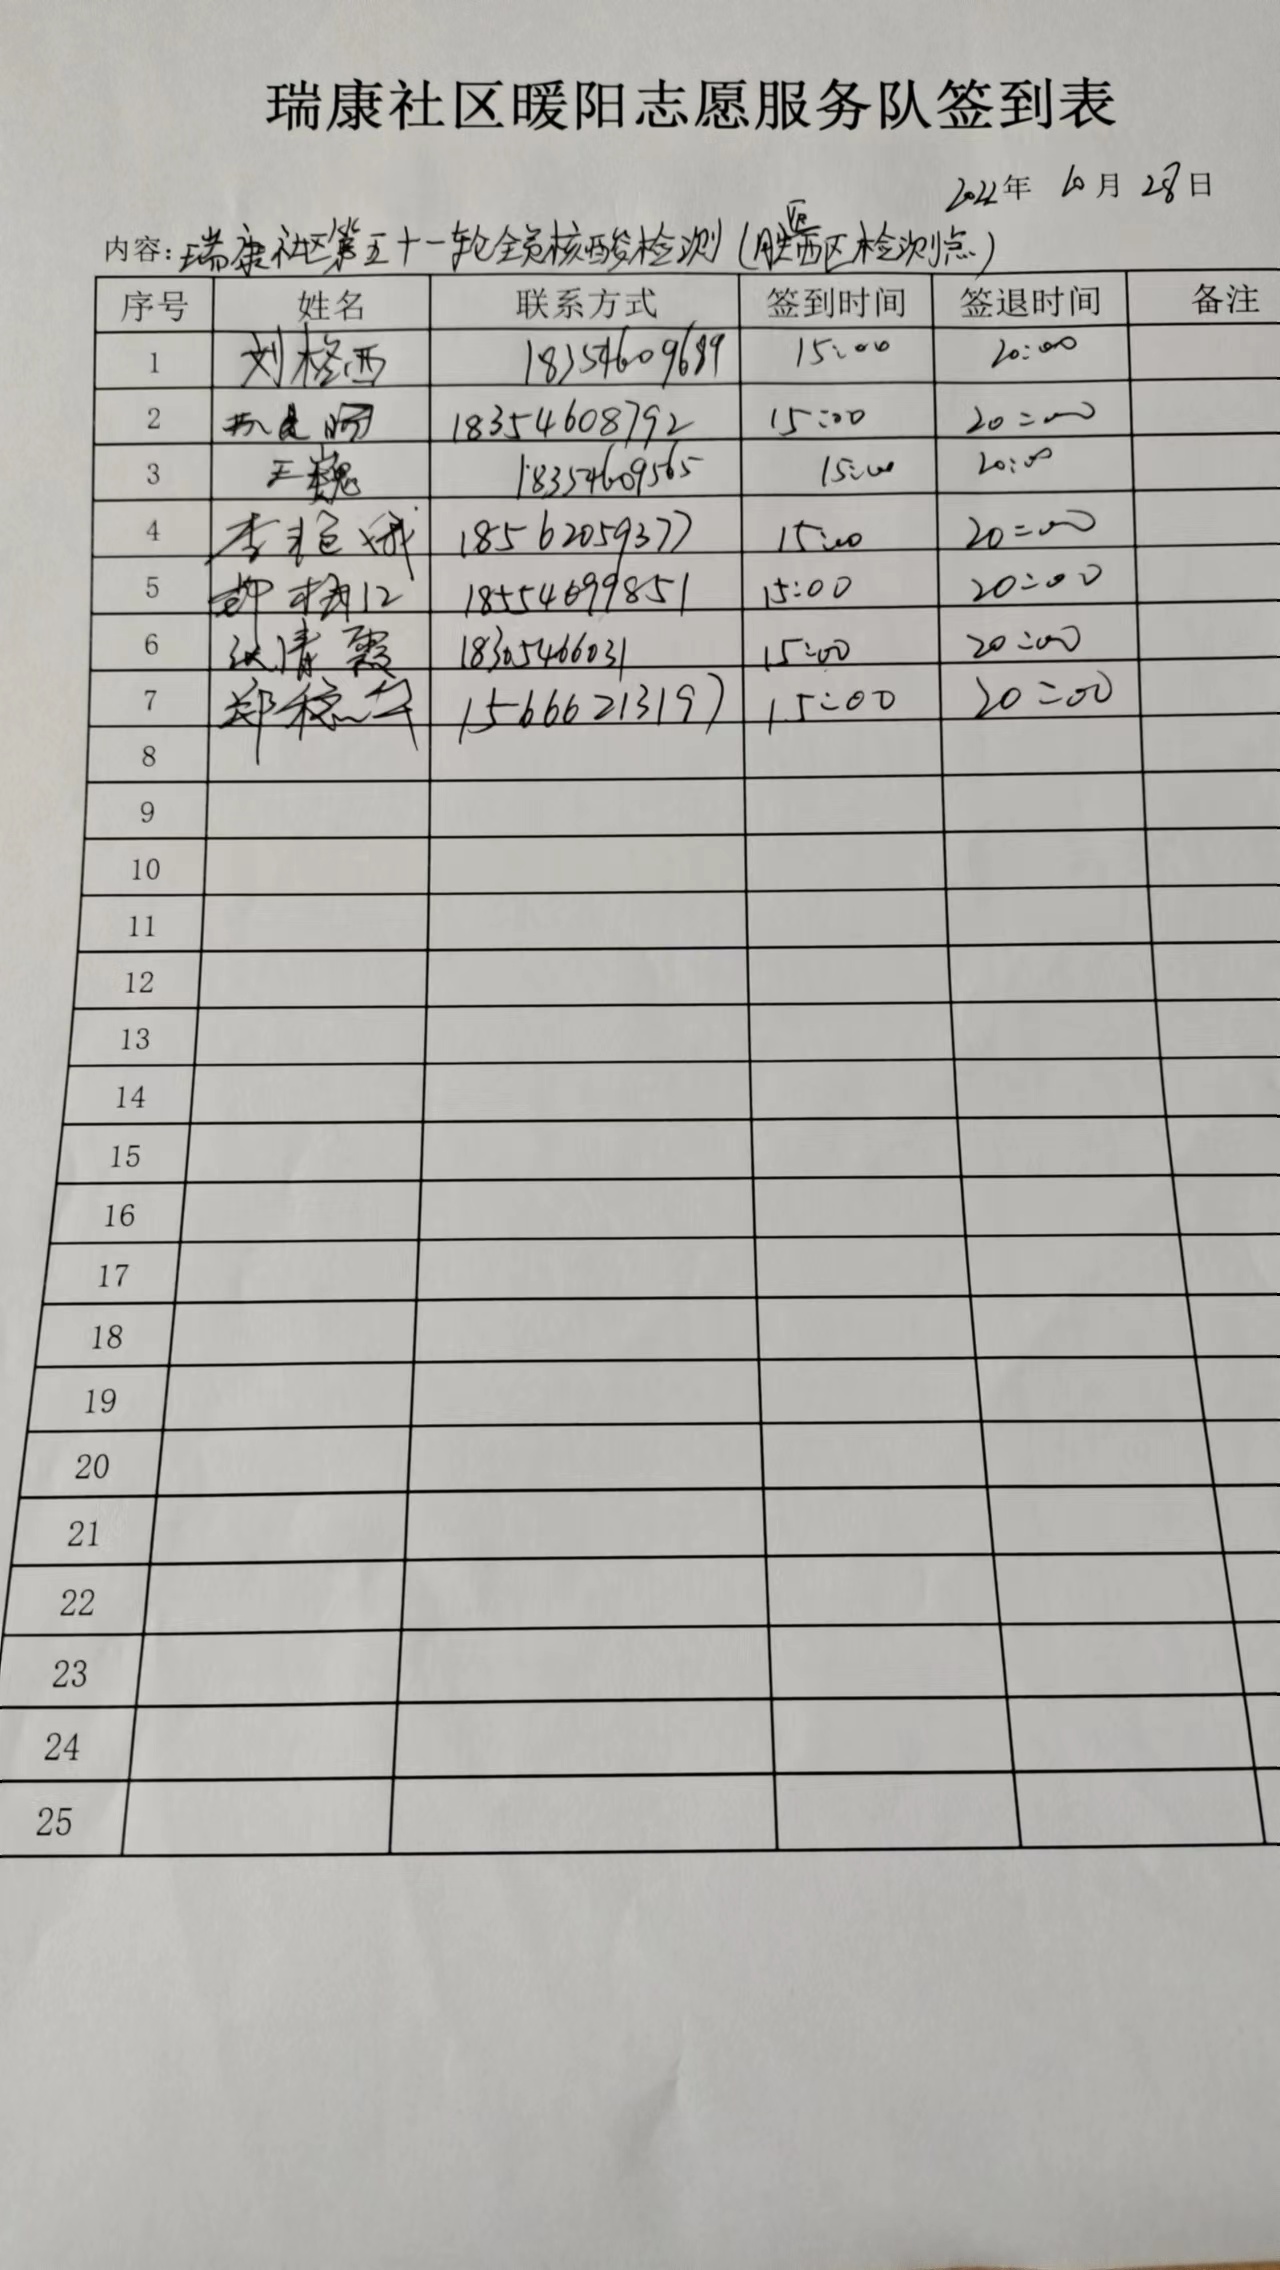 瑞康社区暖阳志愿服务队签到表
2022年 10月 28日
内容:瑞康社区第五十一轮全员核酸检测(胜医西区检测点)
序号 姓名 联系方式 签到时间 签退时间 备注
1 刘格西 18354609689 15:00 20:00
2 18354608792 15:00 20:00
3 王巍 18354609565 15:00 20:00
4 李艳娥 18562059377 15:00 20:00
5 18554699851 15:00 20:00
6 清霞 18305466031 15:00 20:00
7 郑稳 15666213197 15:00 20:00
8
9
10
11
12
13
14
15
16
17
18
19
20
21
22
23
24
25